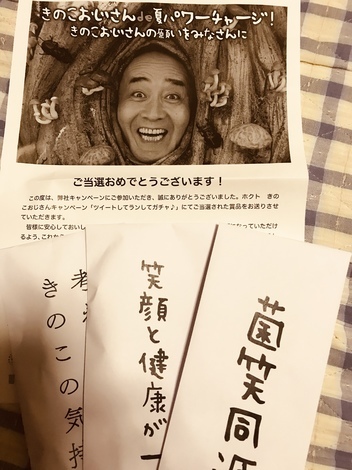 きのこおじさんde夏パワーチャージ!
きのこおじさんの願いをみなさんに
ご当選おめでとうございます!
この度は、弊社キャンペーンにご参加いただき、誠にありがとうございました。ホクト きの
こおじさんキャンペーン「ツイートしてランしてガチャ♪」にてご当選された賞品をお送りさせ
ていただきます。
皆様に安心しておいし
ていただけ
るよう、これか
きのこの気持
笑顔と健康が一
菌笑同源